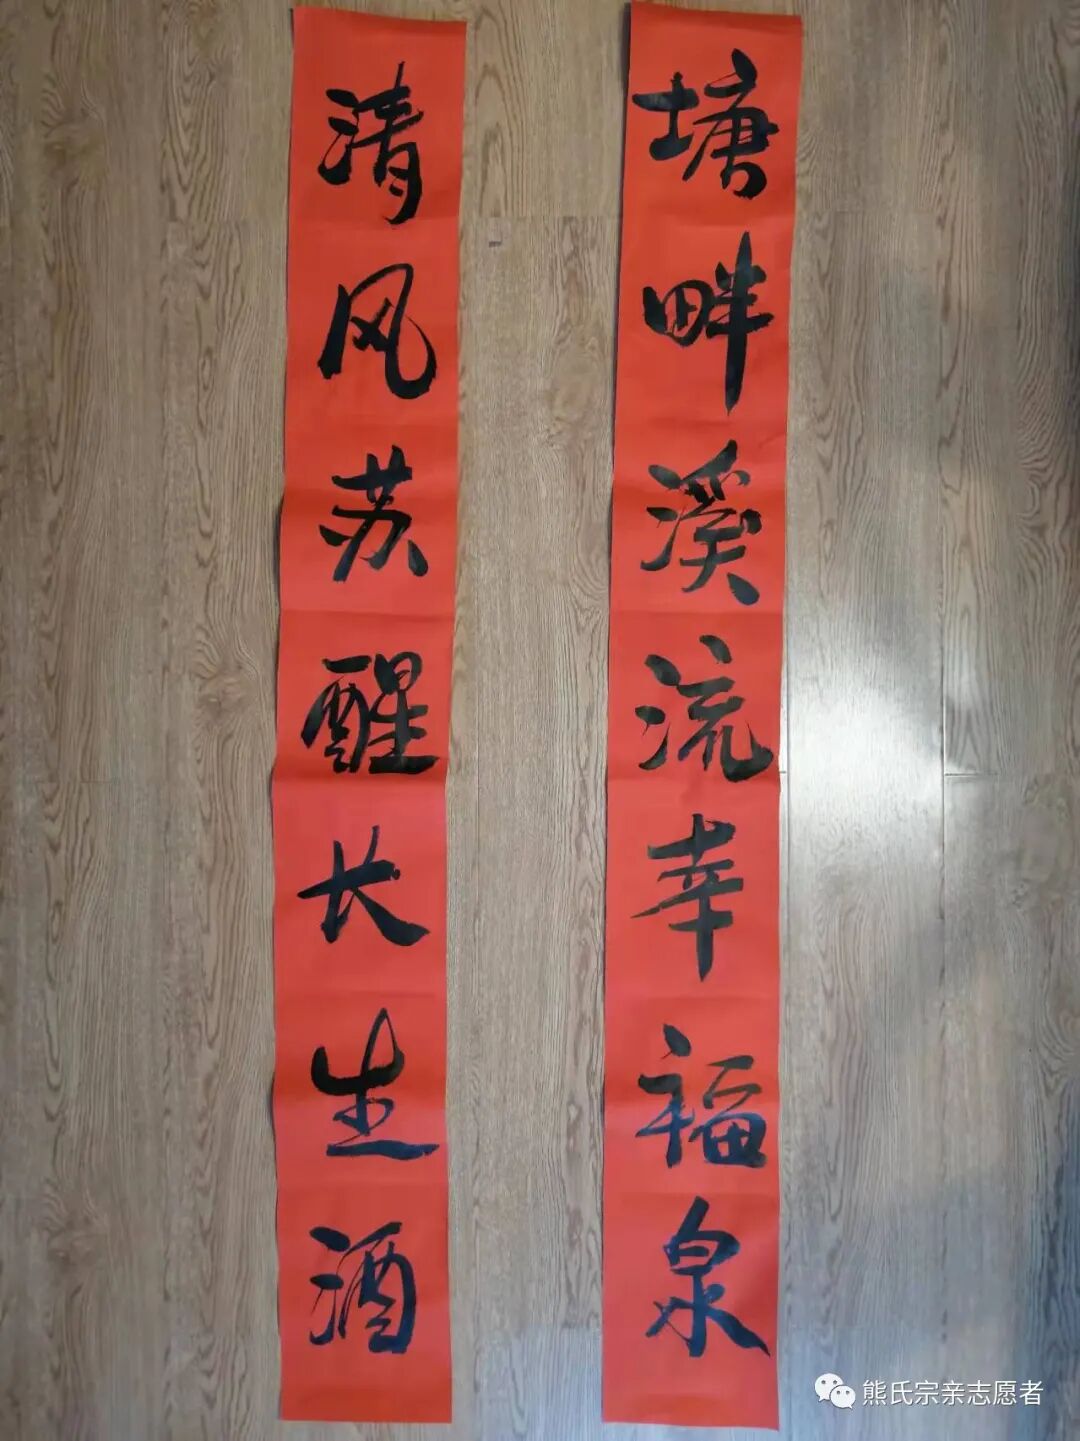 塘畔溪流幸福泉
清风苏醒长生酒
熊氏宗亲志愿者